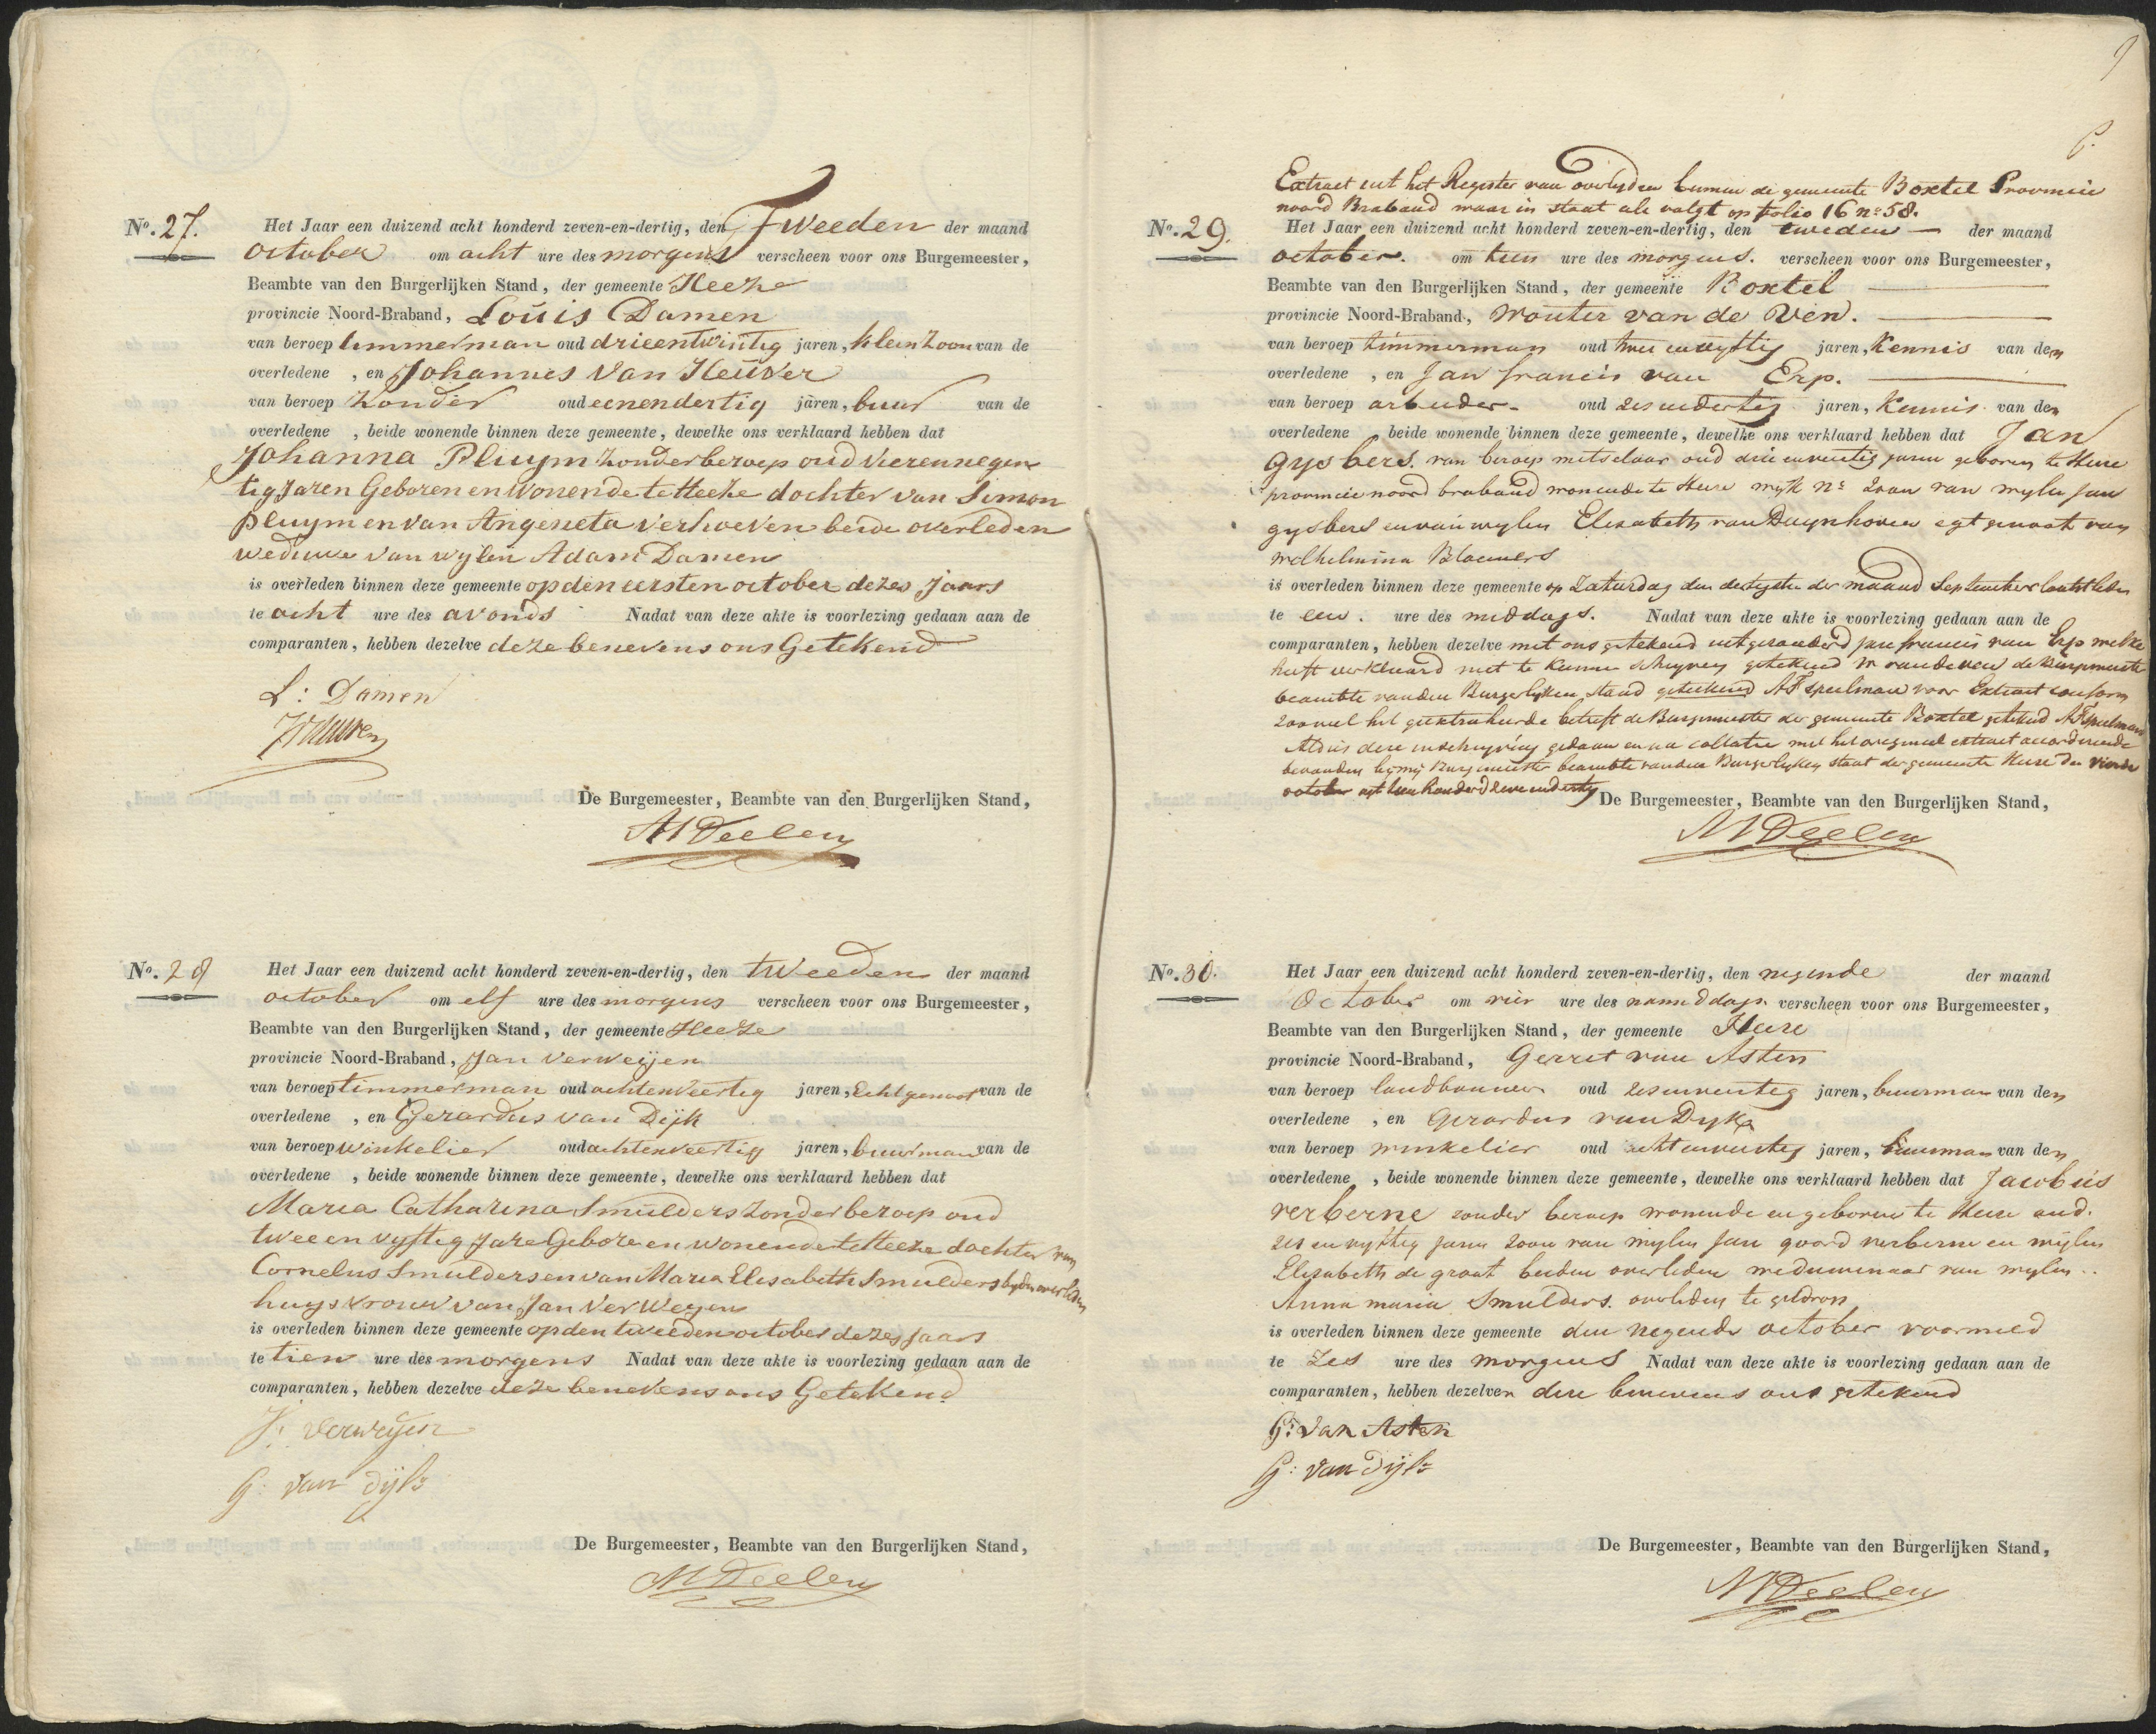 No. 27. Het Jaar een duizend acht honderd zeven-en-dertig, den Tweeden der maand
october om acht ure des morgens verscheen voor ons Burgemeester,
Beambte van den Burgerlijken Stand, der gemeente Heeze
provincie Noord-Braband, Louis Damen
van beroep timmerman oud drieentwintig jaren, kleinzoon van de
overledene , en Johannes Van Heuver
van beroep zonder oud eenendertig jaren, buur van de
overledene , beide wonende binnen deze gemeente, dewelke ons verklaard hebben dat
Johanna Pluym zonder beroep oud Vierennegen
tig Jaren Geboren en Wonende te Heeze dochter van Simon
Pluym en van Angeneta Verhoeven beide overleden
weduwe van wylen Adam Damen
is overleden binnen deze gemeente op den eersten october dezes Jaars
te acht ure des avonds Nadat van deze akte is voorlezing gedaan aan de
comparanten, hebben dezelve deze benevens ons Getekend
L: Damen
De Burgemeester, Beambte van den Burgerlijken Stand,
MDeelen
No. 28 Het Jaar een duizend acht honderd zeven-en-dertig, den tweeden der maand
october om elf ure des morgens verscheen voor ons Burgemeester,
Beambte van den Burgerlijken Stand, der gemeente Heeze
provincie Noord-Braband, Jan Verweijen
van beroep timmerman oud achtenveertig jaren, Echtgenoot van de
overledene , en Gerardus van Dijk
van beroep winkelier oud achtenveertig jaren, buurman van de
overledene , beide wonende binnen deze gemeente, dewelke ons verklaard hebben dat
Maria Catharina Smulders zonder beroep oud
twee en vyftig Jare Gebore en wonende te Heeze dochter van
Cornelus Smulders en van Maria Elisabeth Smulders byden overleden
huysvrouw van Jan Verweyen
is overleden binnen deze gemeente op den tweeden october dezes Jaars
te tien ure des morgens Nadat van deze akte is voorlezing gedaan aan de
comparanten, hebben dezelve deze benevens ons Getekend
J: Verweijen
G: van Dijk
De Burgemeester, Beambte van den Burgerlijken Stand,
MDeelen
9
Extract uit het Register van overlyden binnen de gemeente Boxtel Provincie
noord Braband waar in staat als volgt op folio 16 no 58.
No. 29. Het Jaar een duizend acht honderd zeven-en-dertig, den tweeden der maand
october. om tien ure des morgens. verscheen voor ons Burgemeester,
Beambte van den Burgerlijken Stand, der gemeente Boxtel
provincie Noord-Braband, Wouter van de Ven.
van beroep timmerman oud twee envyftig jaren, Kennis van den
overledene , en Jan francis van Erp.
van beroep arbeider oud zesendertig jaren, Kennis van den
overledene beide wonende binnen deze gemeente, dewelke ons verklaard hebben dat Jan
Gysbers. van beroep metselaar oud drie enveertig jaren geboren te Heeze
provincie noord braband wonende te Heeze wyk no zoon van wylen Jan
gysbers en van wylen Elisabeth van Duynhoven egtgenoot van
Wilhelmina Bloemers
is overleden binnen deze gemeente op Zaturdag den dertigste der maand September laatstleden
te een. ure des middags. Nadat van deze akte is voorlezing gedaan aan de
comparanten, hebben dezelve met ons getekend uitgezonderd Jan francis van Erp welke
heeft verklaard niet te kunnen schryven getekend W van de ven de Burgemeester
beambte van den Burgerlyken stand getekend AF Speelman voor Extract conform
zooveel het geextraheerde betreft de Burgemeester der gemeente Boxtel getekend AF Speelman
Aldus deze inschryving gedaan en na collatie met het origineel extract accorderende
bevonden by my Burgemeester beambte van den Burgerlyken staat der gemeente Heeze den vierde
october agttien honderd zeven endertig De Burgemeester, Beambte van den Burgerlijken Stand,
MDeelen
No. 30. Het Jaar een duizend acht honderd zeven-en-dertig, den negende der maand
October om vier ure des namiddags verscheen voor ons Burgemeester,
Beambte van den Burgerlijken Stand, der gemeente Heeze
provincie Noord-Braband, Gerret van Asten
van beroep landbouwer oud zesenveertig jaren, buurman van den
overledene , en Gerardus van Dyk
van beroep winkelier oud achtenveertig jaren, buurman van den
overledene , beide wonende binnen deze gemeente, dewelke ons verklaard hebben dat Jacobus
verberne zonder beroep wonende en geboren te Heeze oud.
zes en vyftig jaren zoon van wylen Jan goord verberne en wijlen
Elizabeth de groot beiden overleden weduwenaar van wylen
Anna maria Smulders. overleden te geldrop
is overleden binnen deze gemeente den negende october voormeld
te zes ure des morgens Nadat van deze akte is voorlezing gedaan aan de
comparanten, hebben dezelven deze benevens ons getekend
G: van Asten
G: van Dijk
De Burgemeester, Beambte van den Burgerlijken Stand,
MDeelen